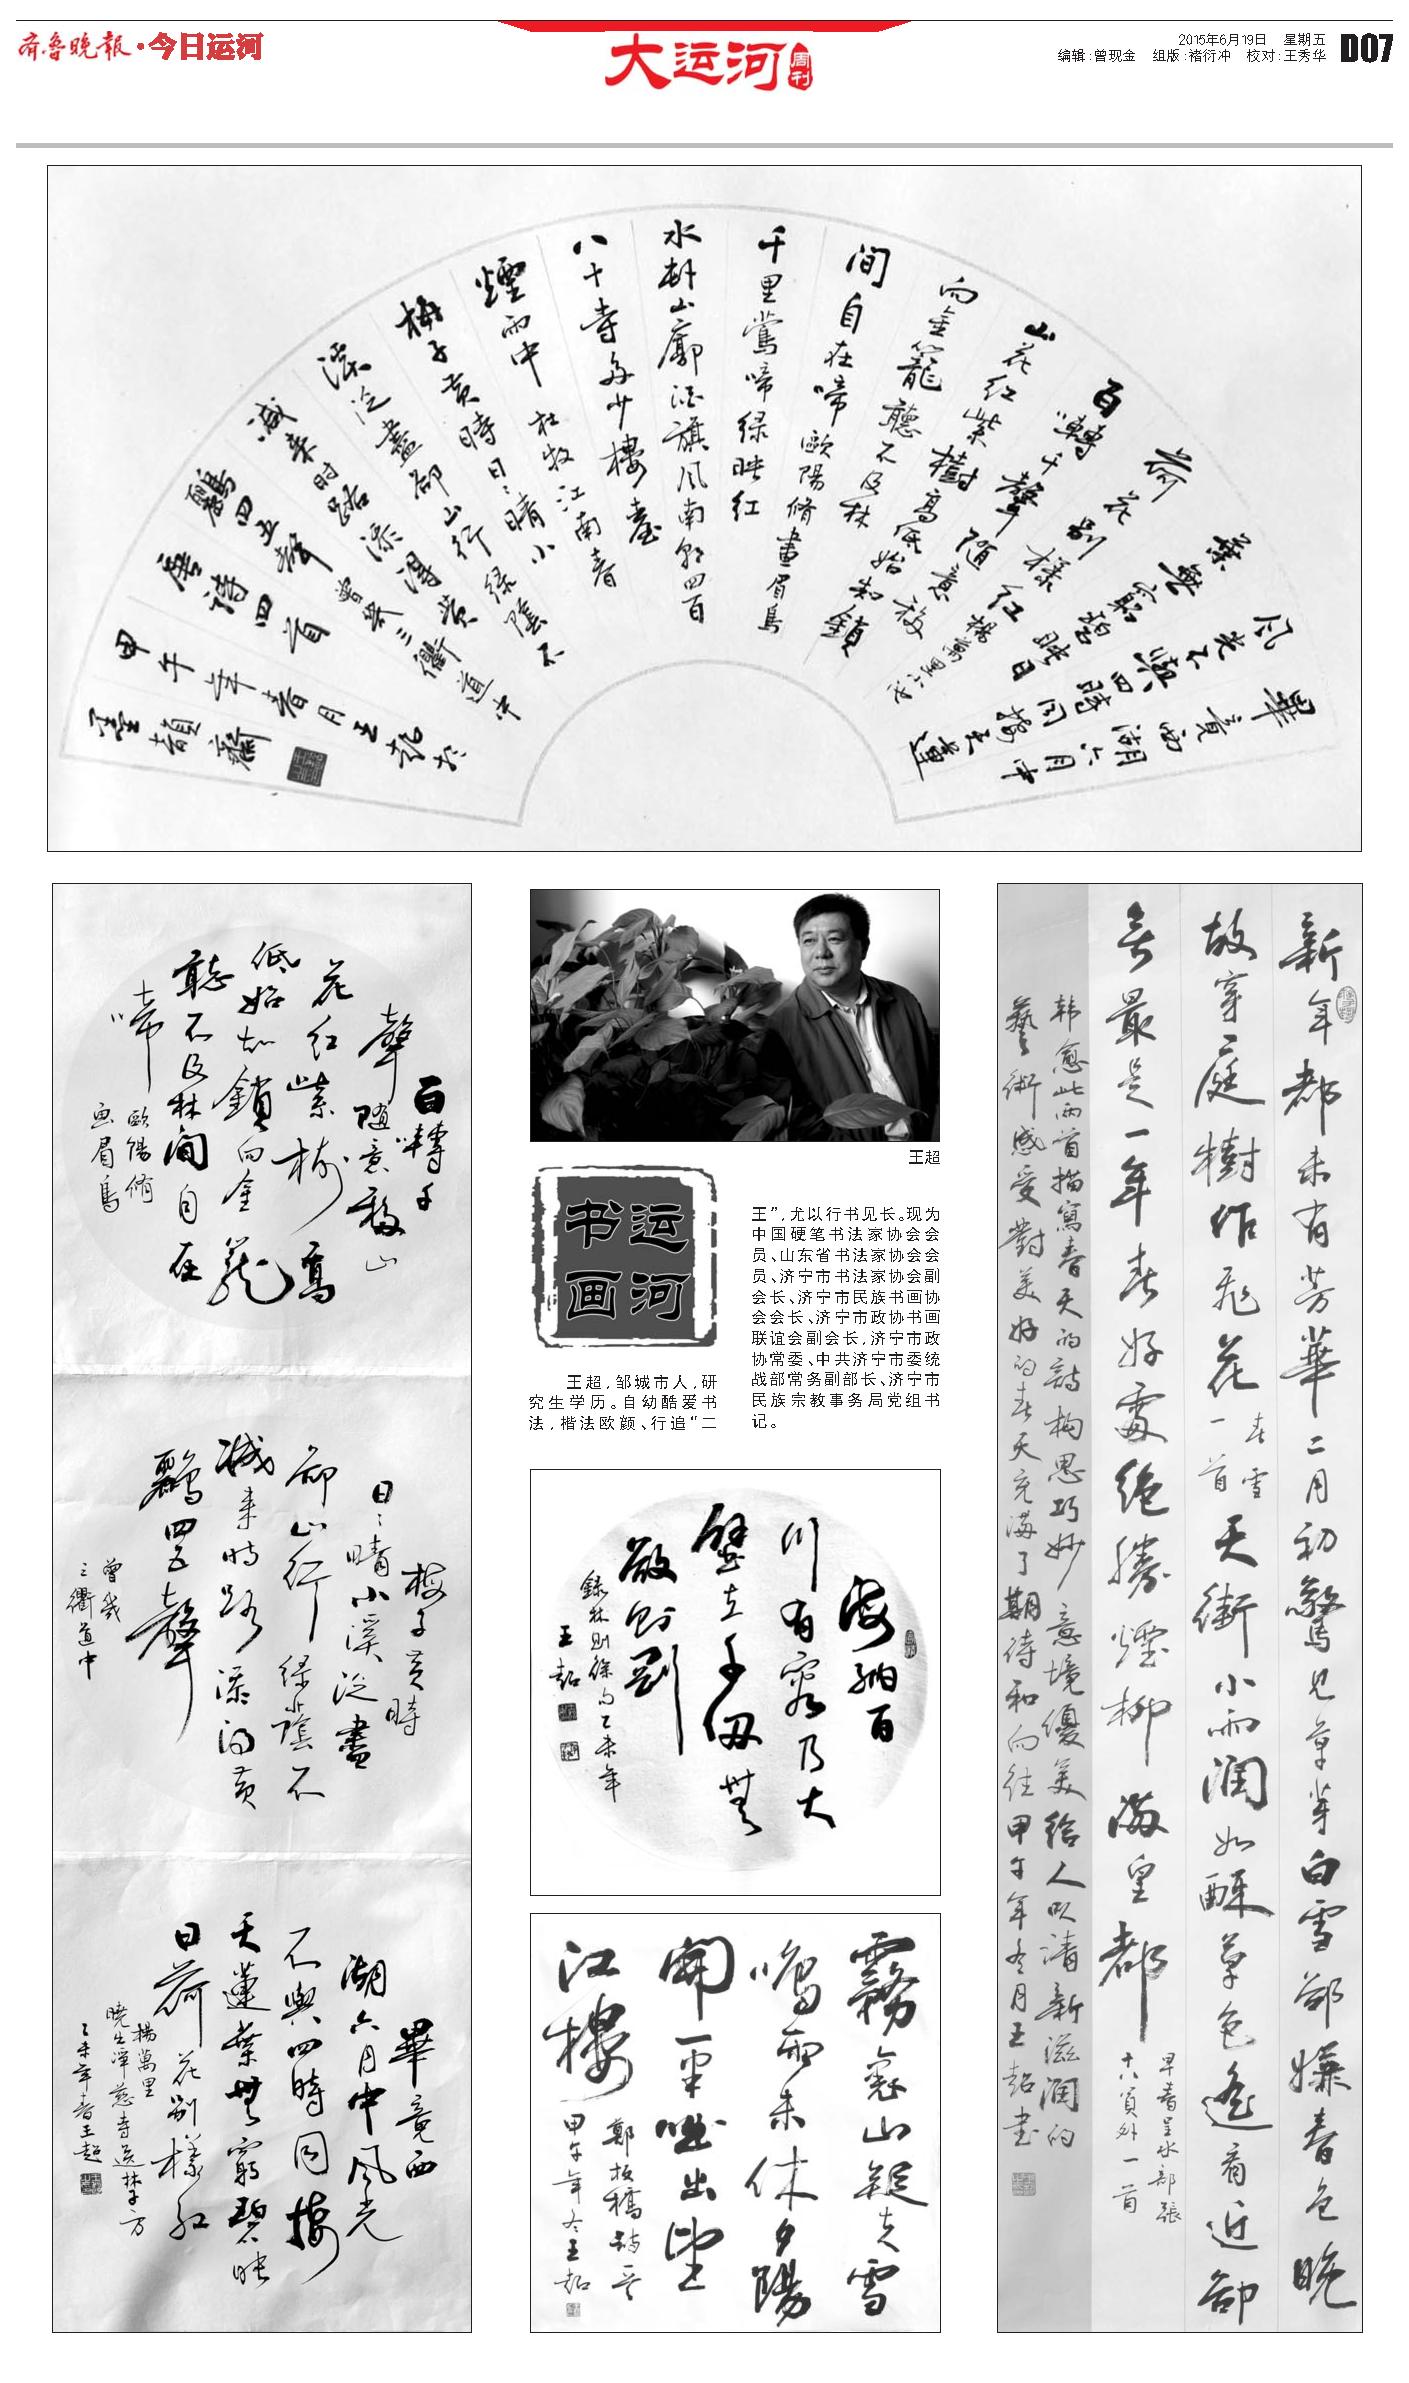 齐鲁晚报·今日运河
大运河
周刊
2015年6月19日 星期五
编辑:曾现金 组版:褚衍冲 校对:王秀华
D07
畢竟西湖六月中
风光不與四時同接天蓮
葉無窮碧映日
荷花别樣红 楊萬里
百囀千聲隨意移
山花红紫樹高低始知鎖
向金籠聽不及林
间自在啼 歐陽脩畫眉鳥
千里鶯啼绿映红
水村山廓酒旗风南朝四百
八十寺多少樓臺
煙雨中 杜牧江南春
梅子黄時日々晴小
溪泛盡却山行绿蔭不
减来时路添得黄
鸝四五聲 曾幾三衢道中
唐詩四首
甲午年春月王超於
墨韻齋
百囀千
聲隨意移山
花红紫樹高
低始知鎖向金籠
聽不及林间自在
啼
歐陽脩
画眉鳥
梅子黄時
日々晴小溪泛盡
却山行绿蔭不
减来時路添得黄
鸝四五聲
曾幾
三衢道中
畢竟西
湖六月中风光
不與四時同接
天蓮葉無窮碧映
日荷花别樣红
楊萬里
曉出淨慈寺送林子方
乙未年春王超
王超
运河
书画
王超，邹城市人，研
究生学历。自幼酷爱书
法，楷法欧颜、行追“二
王”，尤以行书见长。现为
中国硬笔书法家协会会
员、山东省书法家协会会
员、济宁市书法家协会副
会长、济宁市民族书画协
会会长、济宁市政协书画
联谊会副会长，济宁市政
协常委、中共济宁市委统
战部常务副部长、济宁市
民族宗教事务局党组书
记。
海纳百
川有容乃大
壁立千仞無
欲则刚
録林则徐句乙未年
王超
霧裹山疑失雪
鳴雨未休夕陽
開一半吐出望
江樓
鄭板橋詩一首
甲午年冬王超
新年都未有芳華二月初驚見草芽白雪卻嫌春色晚
故穿庭樹作飛花 春雪一首 天街小雨润如酥草色遙看近卻
無最是一年春好處絶勝煙柳滿皇都
早春呈水部張
十八員外一首
韩愈此两首描寫春天的詩构思巧妙意境優美给人以清新滋潤的
藝術感受對美好的春天充滿了期待和向往甲午年冬月王超书